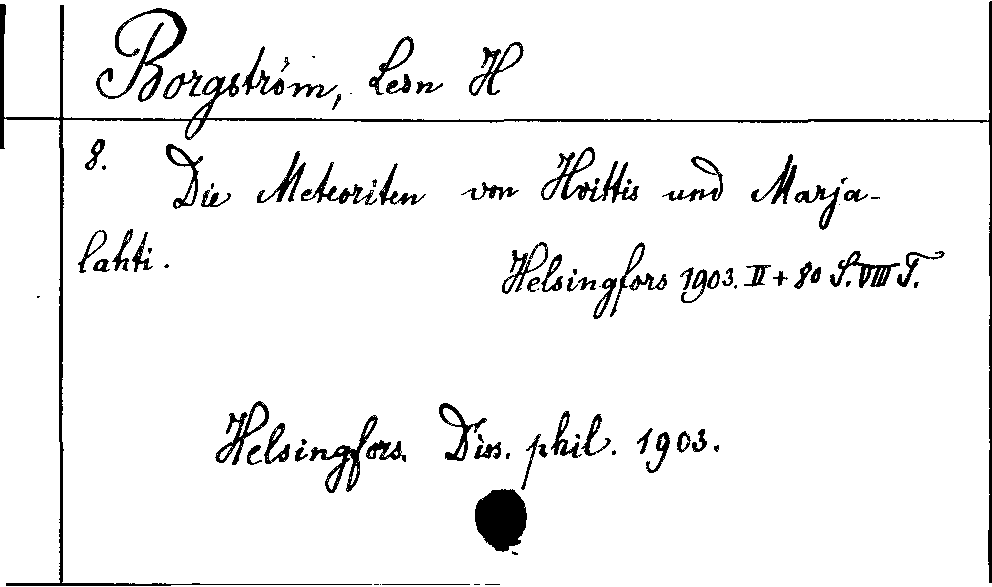 Borgström, Leon H
8. Die Meteoriten von Hvittis und Marja-
lahti.
Helsingfors 1903. II + 80 S. VIII T.
Helsingfors. Diss. phil. 1903.